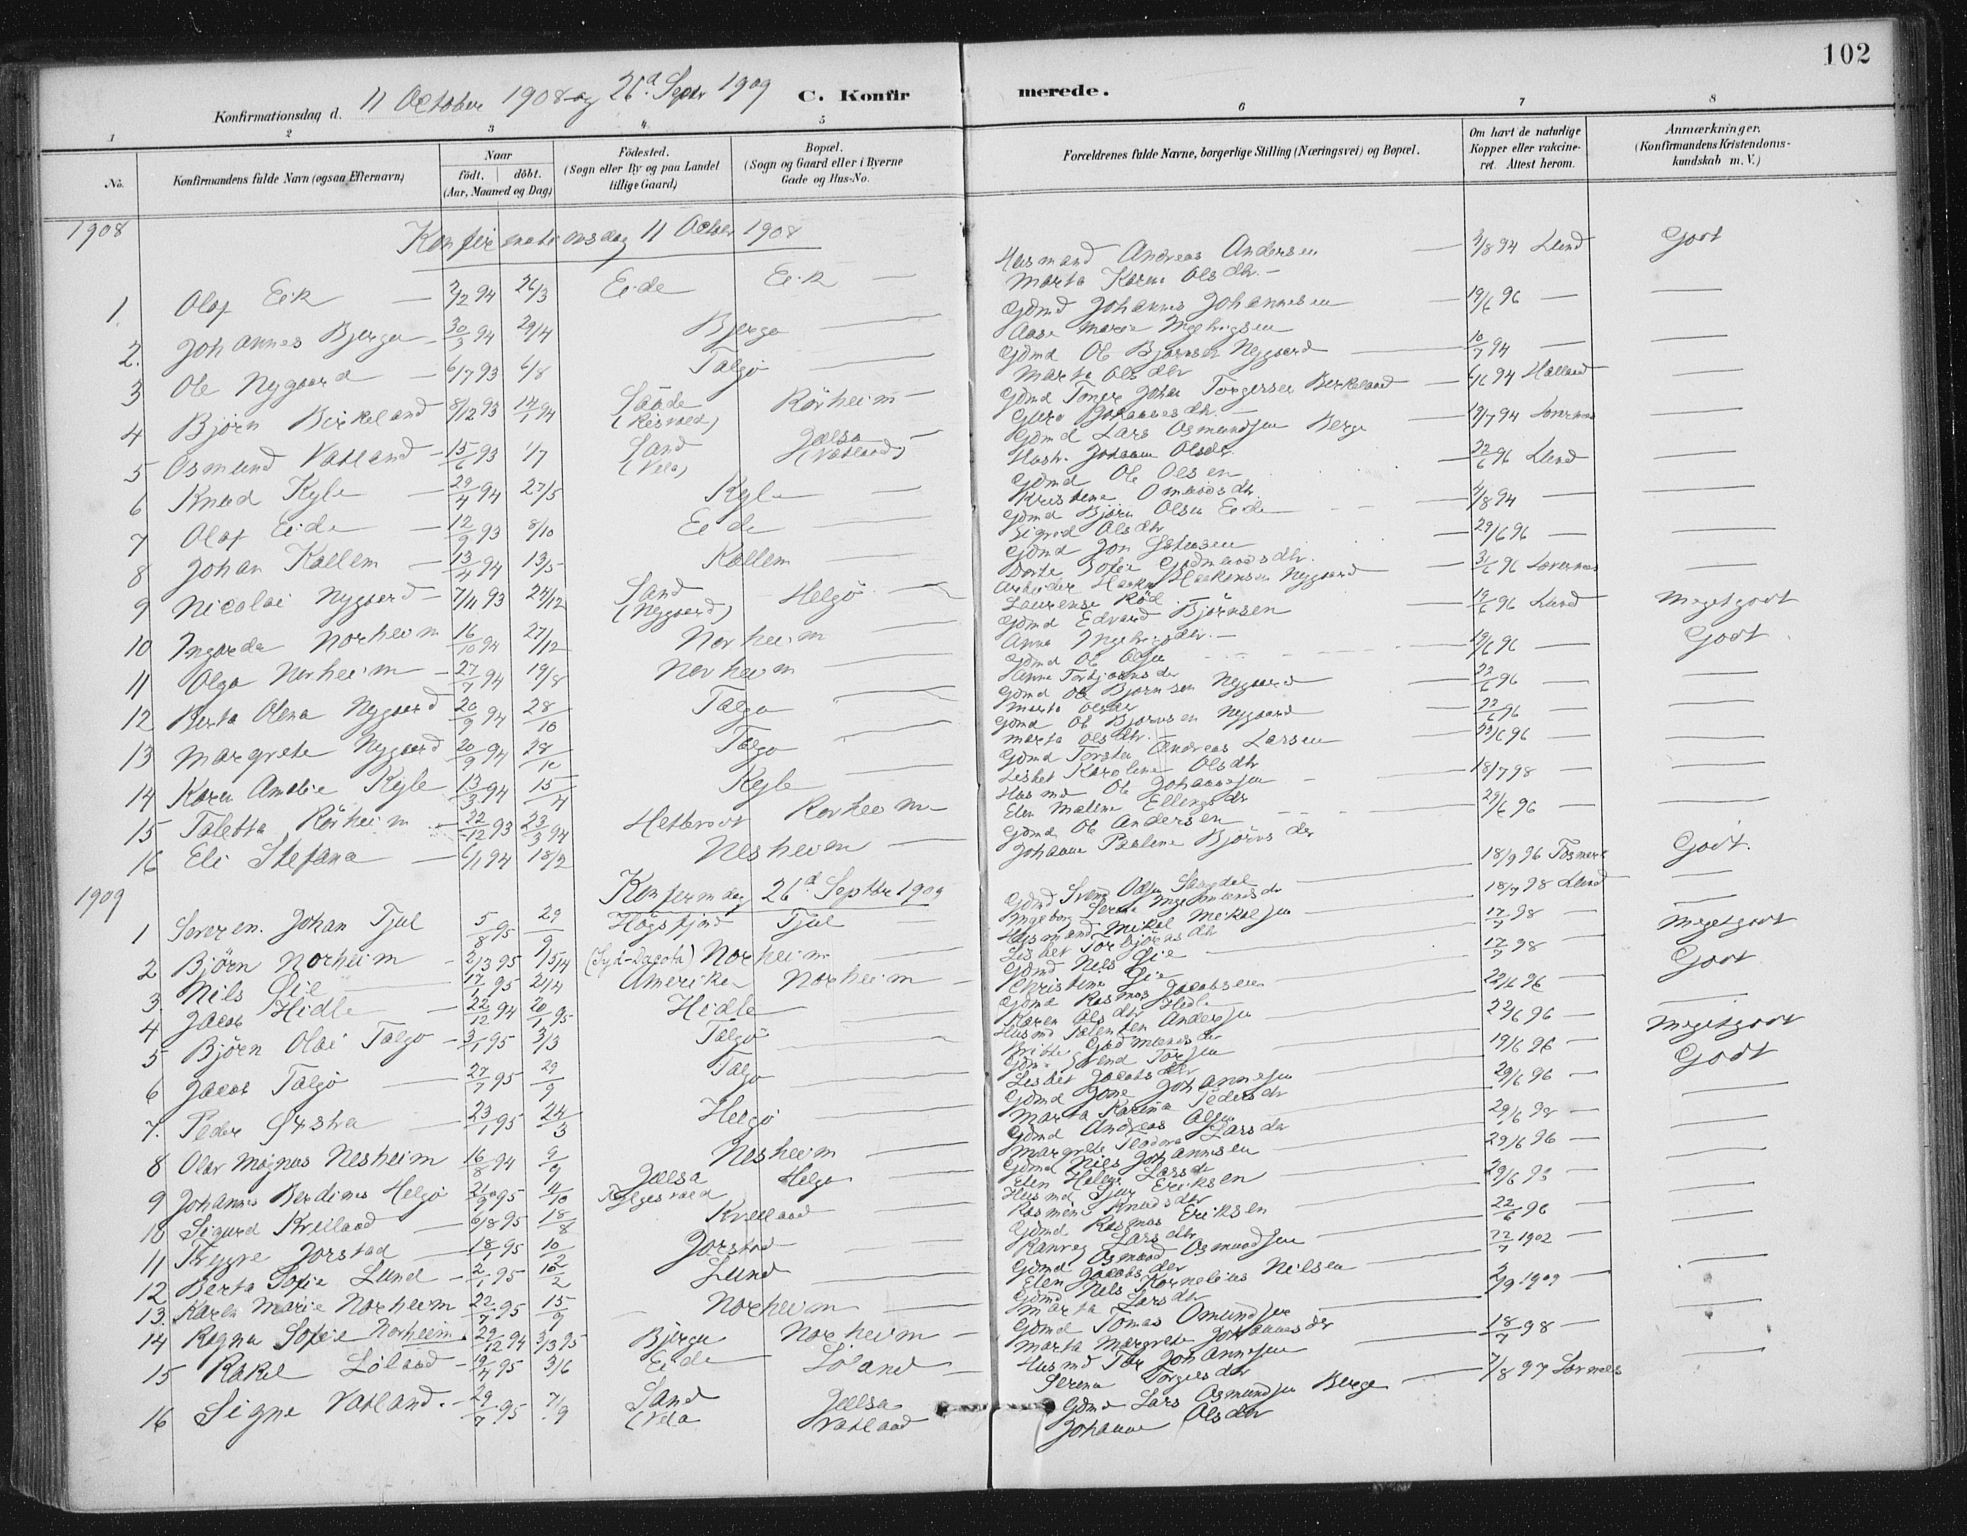 102
Konfirmationsdag d. 11 October 1908 og 26d Septr 1909
C. Konfirmerede.
1 2 3 4 5 6 7 8
No.
Konfirmandens fulde Navn (ogsaa Efternavn)
Naar
født. døbt.
(Aar, Maaned og Dag)
Födested.
(Sogn eller By og paa Landet
tillige Gaard)
Bopæl.
(Sogn og Gaard eller i Byerne
Gade og Hus-No.
Forældrenes fulde Navne, borgerlige Stilling (Næringsvei) og Bopæl.
Om havt de naturlige
Kopper eller vakcine-
ret. Attest herom.
Anmærkninger.
(Konfirmandens Kristendoms-
kundskab m. V.)
1908 Konfirmationsdag 11 October 1908
1 Olaf Eik 2/12 94 26/3 Eide Eik Husmand Andreas Andersen 2/8 94 Lund Godt
Marta Karine Olsdtr.
2. Johannes Bjerga 30/3 94 29/4 Bjerga Gdmd Johannes Johannesen 19/6 96
Aase Marie
3 Ole Nygaard 6/7 93 6/8 Talgø Gdmd Ole Bjørnsen Nygaard 10/7 94
Marta Olsdtr
4 Bjørn Birkeland 8/12 93 14/1 94 Saude Rörheim Gdmd Johan Torgersen Birkeland
Guro Johannesdtr.
5 Osmund Vatland 15/6 93 1/7 Sand (Vela) Jælsa (Vatland) Gdmd Lars Osmundsen Berge 19/7 94
Hustr. Johanne Olsdtr
6 Knud Kyle 29/4 94 27/5 Kyle Gdmd Ole Olsen 22/6 96 Lund
Kristine Omundsdtr
7 Olaf Eide 12/9 93 8/10 Eide Gdmd Bjørn Olsen Eide 4/8 94
Sigrid Olsdtr
8 Johan Kallem 13/4 94 13/5 Kallem Gdmd Jon 29/6 96
Dorte Sofie Gudmundsdtr.
9 Nicolai Nygaard 7/11 93 24/12 Sand (Nygaard) Helgö Arbeider Haakon Haakonsen Nygaard 3/6 96
Laurense Röd
10 Ingarda Norheim 16/10 94 27/12 Norheim Gdmd Edvard Bjørnsen 19/6 96 Lund Megetgodt
Anna
11 Olga Norheim 27/7 94 19/8 Norheim Gdmd Ole Olsen 19/6 96 Godt
Hanna Torbjørnsdr
12 Berta Olena Nygaard 20/9 94 28/10 Talgø Gdmd Ole Bjørnsen Nygaard 22/6 96
Marta Olsdtr
13 Margrete Nygaard 20/9 94 28/10 Talgø Gdmd Ole Bjørnsen Nygaard 22/6 96
Marta Olsdtr.
14 Karen Amalie Kyle 13/3 94 15/4 Kyle Gdmd Torsten Andreas Larsen 22/6 96
Lisbet Karoline Olsdtr
15 Taletta Rörheim 22/12 93 23/3 94 Rörheim Husmd Ole Johannesen 18/7 98
Elen Maline Ellingsdtr
16 Eli Stefana 6/1 94 18/2 Nesheim Gdmd Ole Andersen 29/6 96
Johanne Pauline Bjørnsdtr
1909 Konfirmdag 26d Septbr 1909
1 Søren Johan Tjul 5/8 95 29/9 Högsfjord Tjul Gdmd Svend Olsen 18/9 96 Godt.
Ingeborg Serine
2 Bjørn Norheim 2/3 95 15/4 (Syd-Dacota) Norheim Husmand Mikal Mikalsen 18/7 98 Lund
Lisbet Torbjørnsdtr
3. Nils Øie 17/2 95 21/4 Amerika Norheim Gdmd Nils Øie 17/7 98 Megetgodt
Kristine Øie
4 Jacob Hidle 22/12 94 20/1 95 Hidle Gdmd Rasmus Jacobsen Hidle 17/7 98 Godt
Karen Olsdtr
5 Bjørn Olai Talgø 3/1 95 3/3 Talgø Husmd Andersen 22/6 96
Britte Gudmundsdtr
6 Jacob Talgø 27/7 95 29/9 Talgø Gdmd Svend 22/6 96 Megetgodt
Lisbet Jacobsdtr
7. Peder Ørstra 23/1 95 24/3 Helgö Gdmd Johannesen 19/6 96 Godt
Marta Karina Pedersdtr
8 Olav Magnus Nesheim 16/8 94 9/9 Nesheim Gdmd Andreas Olsen 29/6 96
Margrete Teodora Larsdtr
9 Johannes Berdines Helgö Jælsa Helgø Gdmd Nils Johannesen 29/6 98
Elen Helene Larsdtr
10 Sigurd Kvilaad 6/8 95 18/8 Kvilaad Husmd Sjur Eriksen 29/6 96
Rasmine Knudsdtr
11 Trygve Jørstad 18/1 95 10/2 Jørstad Gdmd Rasmus Eriksen
Ranveg Larsdtr
12 Berta Sofie Lund 2/1 95 10/2 Lund Gdmd Osmund Osmundsen 22/6 96
Elen Jacobsdtr
13. Karen Marie Norheim 22/7 95 15/9 Norheim Gdmd Nils Kornelius Nilsen 22/7 1902
Marta Larsdtr
14 Ragna Sofie Norheim 29/12 94 3/3 95 Bjerga Norheim Gdmd Tomas Omundsen 2/9 1909
Marta Margrete Johannesdtr
15 Rakel Löland 19/4 95 3/6 Eide Löland Husmd Tor Johannesen 18/7 98
Serina Torgersdtr
16 Signe Vatland. 29/7 95 7/9 Sand (Vela Jælsa Vatland Gdmd Lars Osmundsen Berge 7/8 97
Johanne Olsdtr